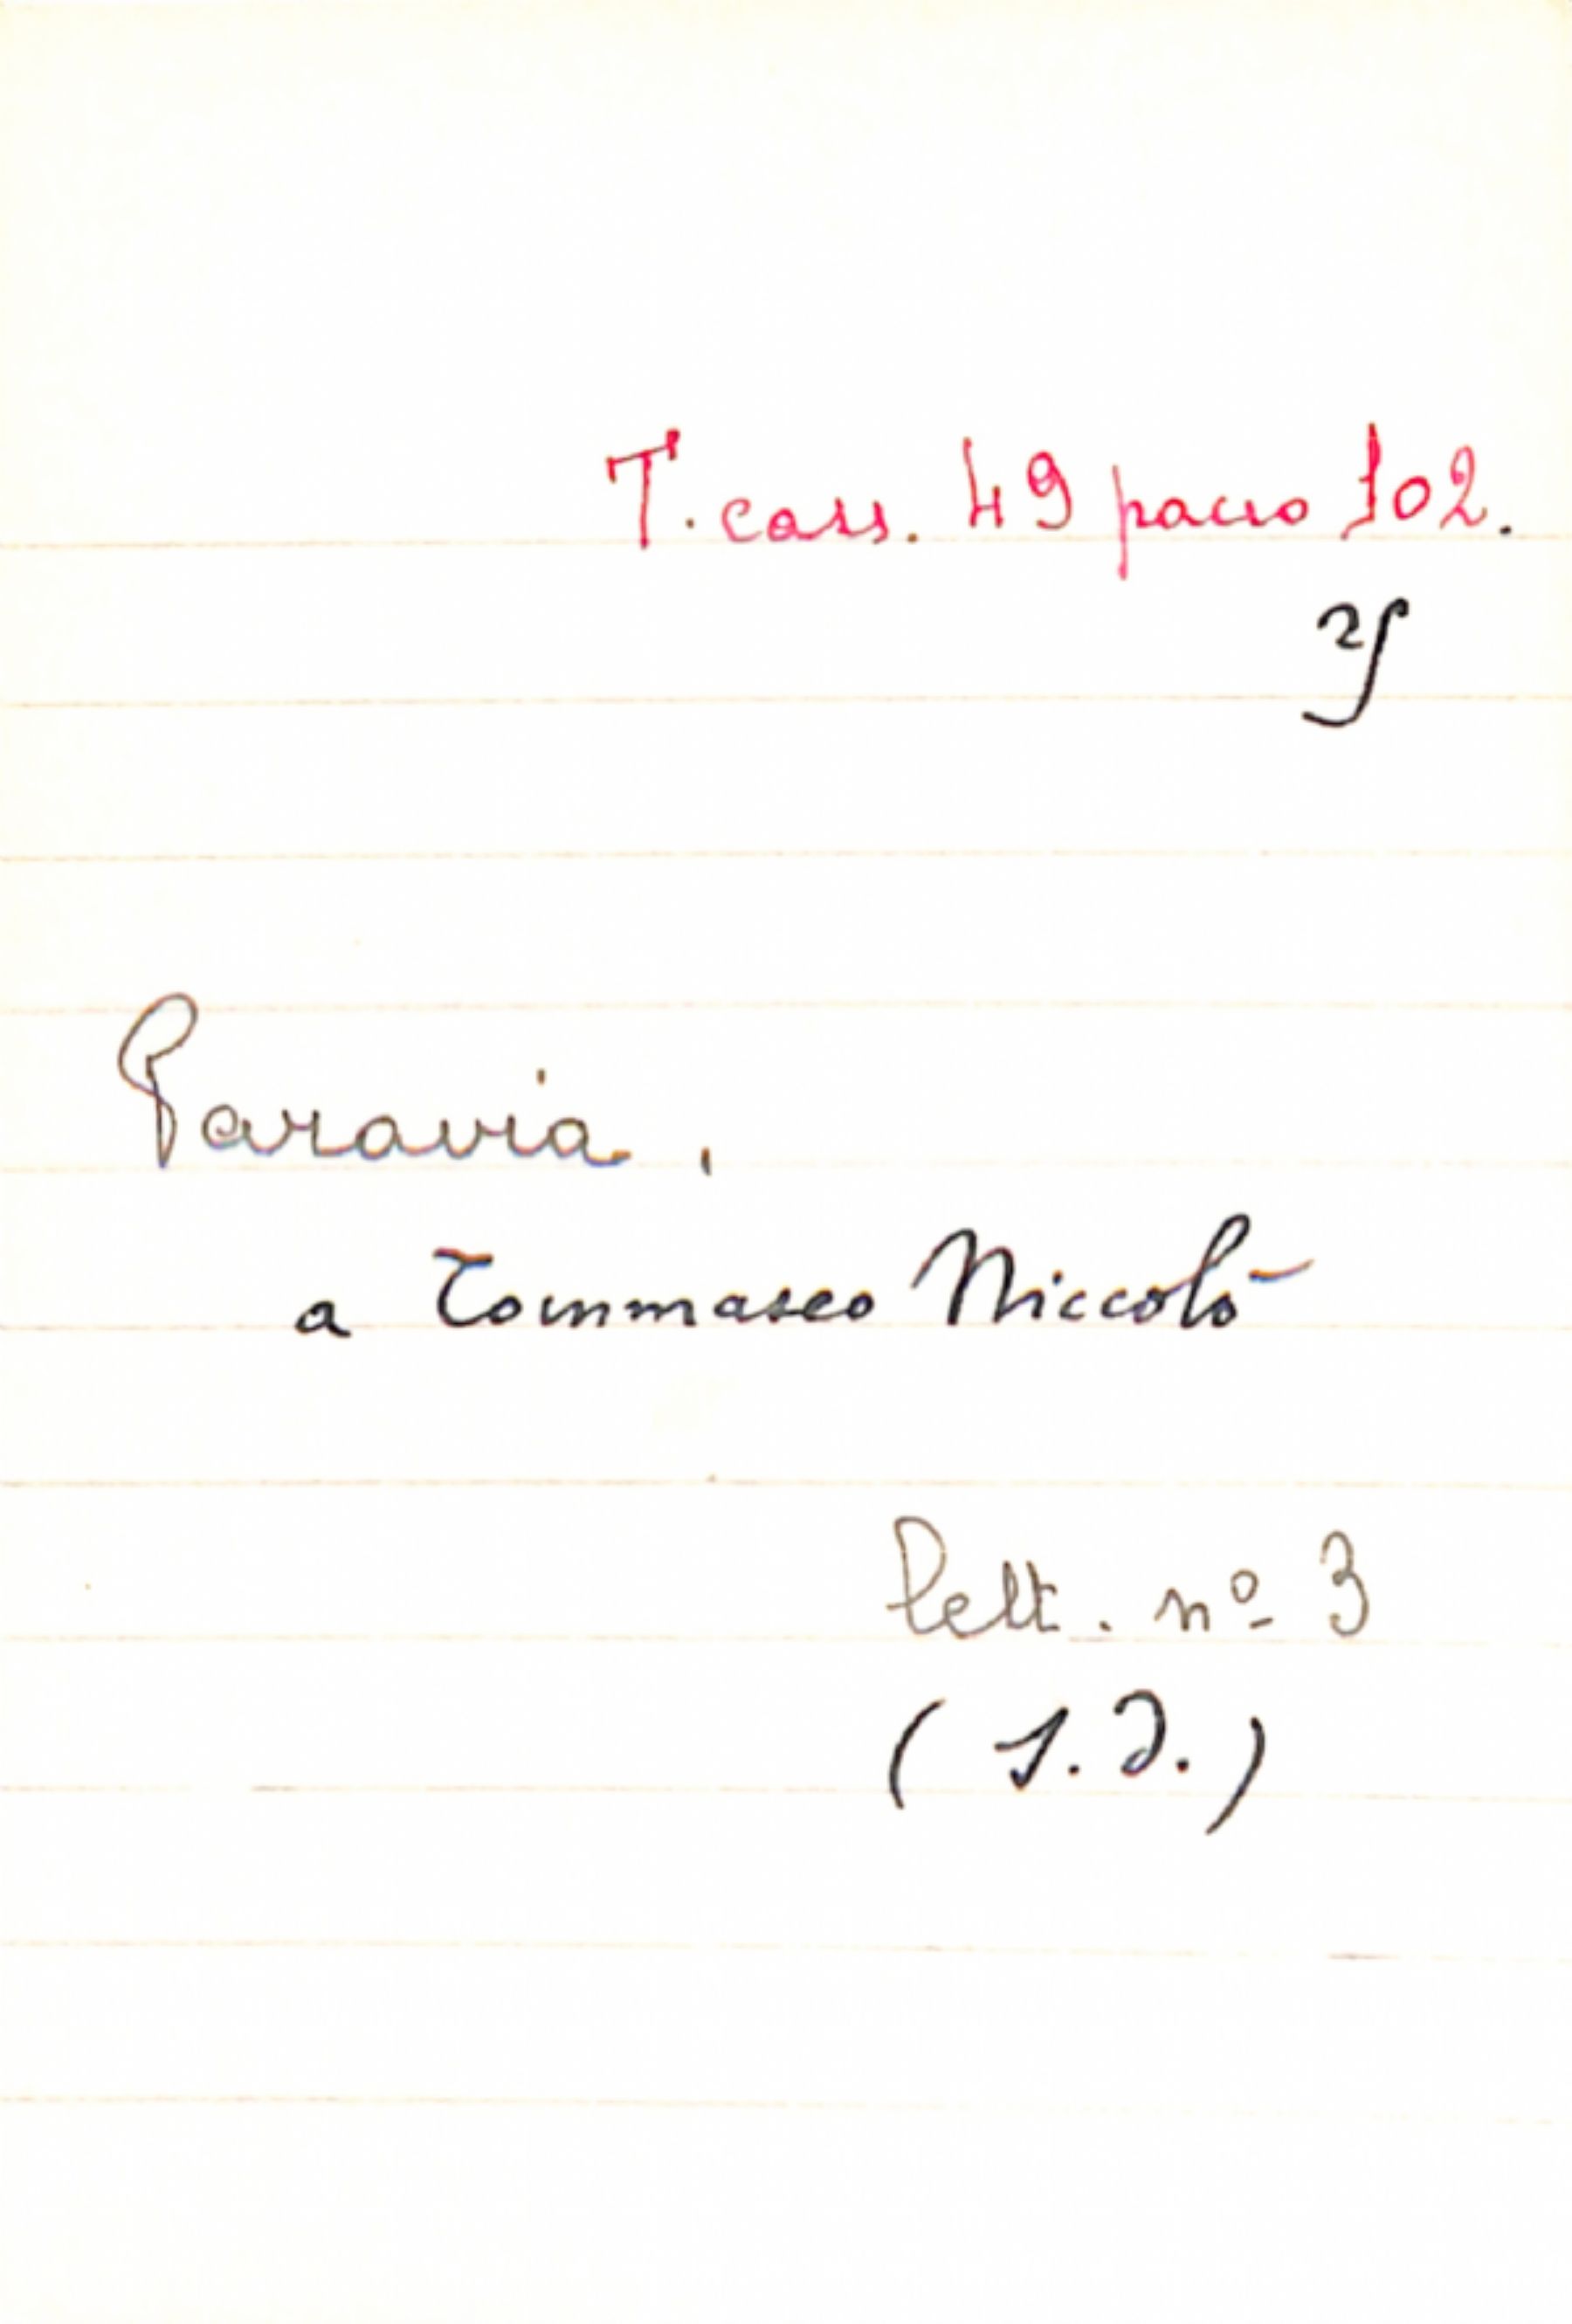 T. cass. 49 pacco 102.
Paravia,
a Tommaseo Niccolò
lett. nº 3
(s.d.)